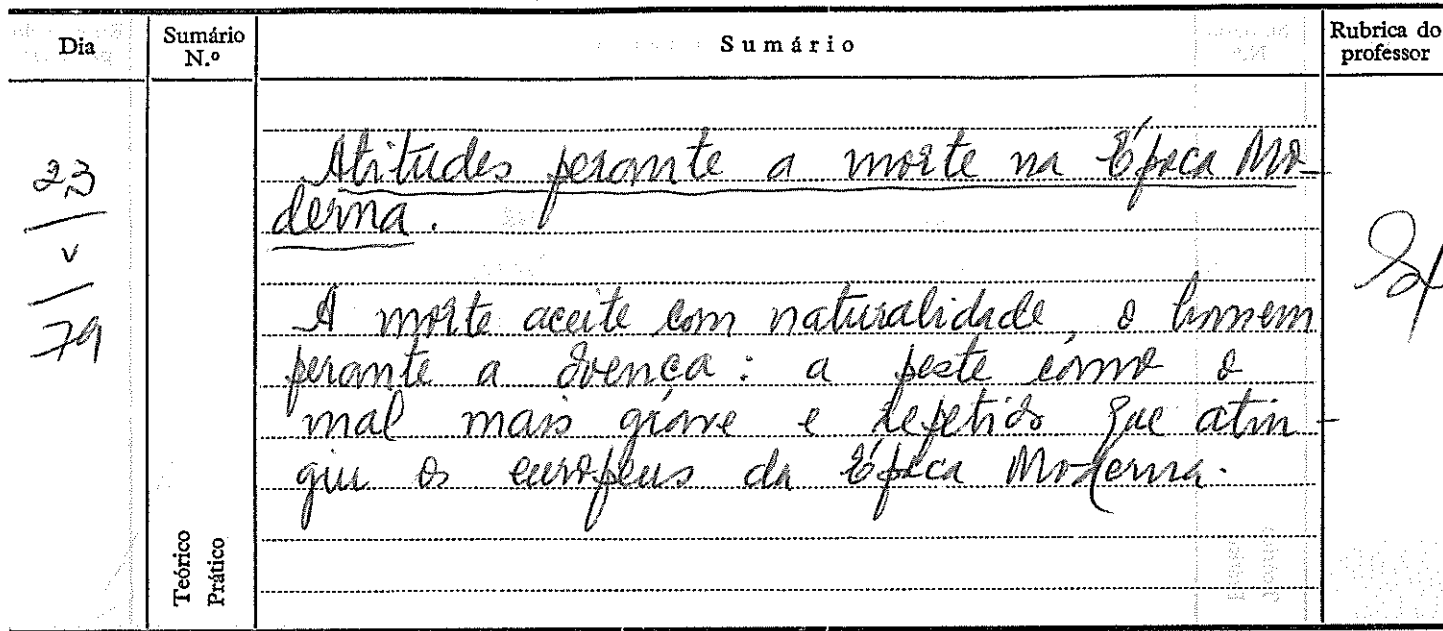 Dia
Sumário
N.º
Sumário
Rubrica do
professor
23
V
79
Atitudes perante a morte na Época Mo-
derna.
A morte aceite com naturalidade, o homem
perante a doença: a peste como o
mal mais grave e repetido que atin-
giu os europeus da Época Moderna.
Teórico
Prático